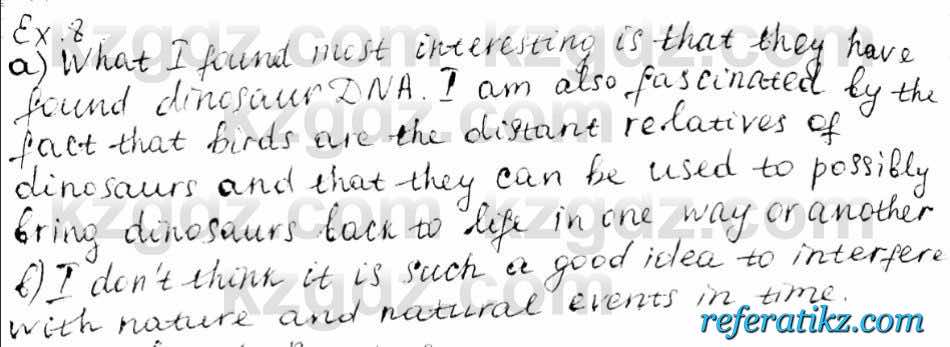 Ex. 8
a) What I found most interesting is that they have
found dinosaur DNA. I am also fascinated by the
fact that birds are the distant relatives of
dinosaurs and that they can be used to possibly
bring dinosaurs back to life in one way or another
b) I don't think it is such a good idea to interfere
with nature and natural events in time.
referatikz.com